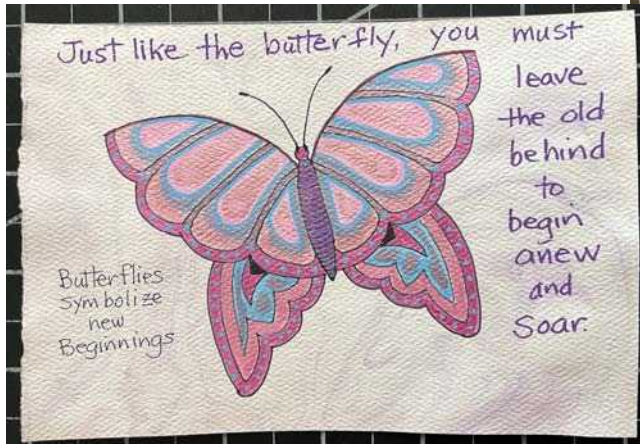 Just like the butterfly, you must
leave
the old
behind
to
begin
anew
and
Soar.
Butterflies
symbolize
new
Beginnings